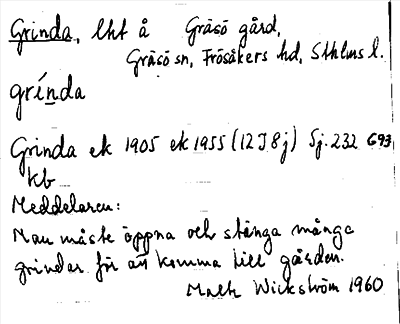 Grinda, lht å Gräsö gård,
Gräsö sn, Frösåkers hd, Sthlms l.
grínda
Grinda ek 1905 ek 1955 (12I8j) Sj. 232 693
kb
Meddelaren:
Man måste öppna och stänga många
grindar för att komma till gården.
Wickström 1960